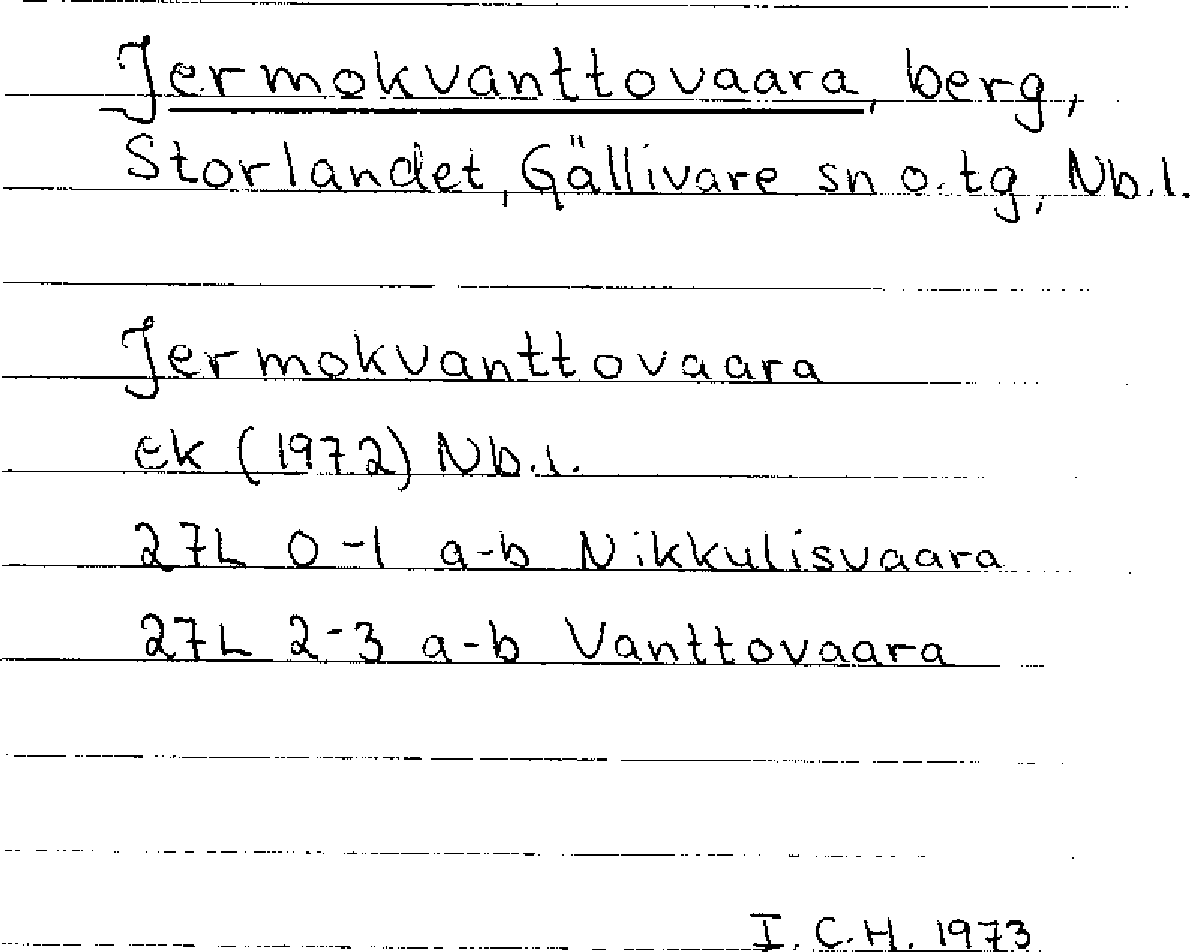 Jermokvanttovaara, berg,
Storlandet, Gällivare sn o. tg, Nb.l.
Jermokvanttovaara
ek (1972) Nb.l.
27L 0-1 a-b Nikkulisvaara
27L 2-3 a-b Vanttovaara
I. C. H. 1973.